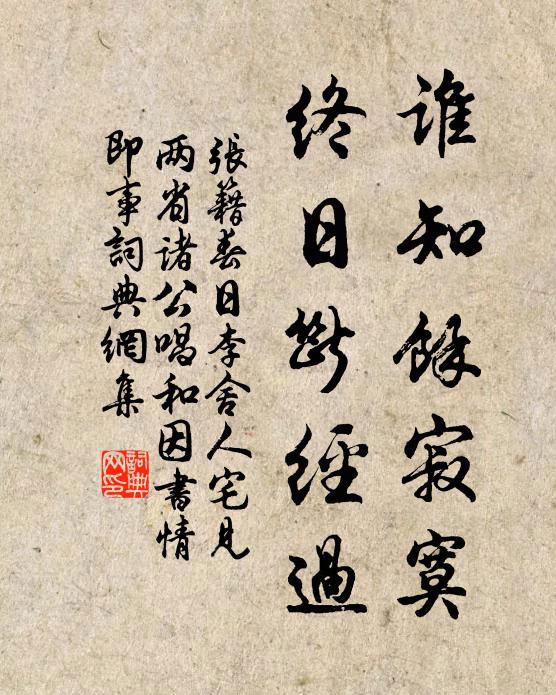 誰知餘寂寞
終日斷經過
張籍春日李舍人宅見
两省诸公唱和因書情
即事詞典網集
詞典网印